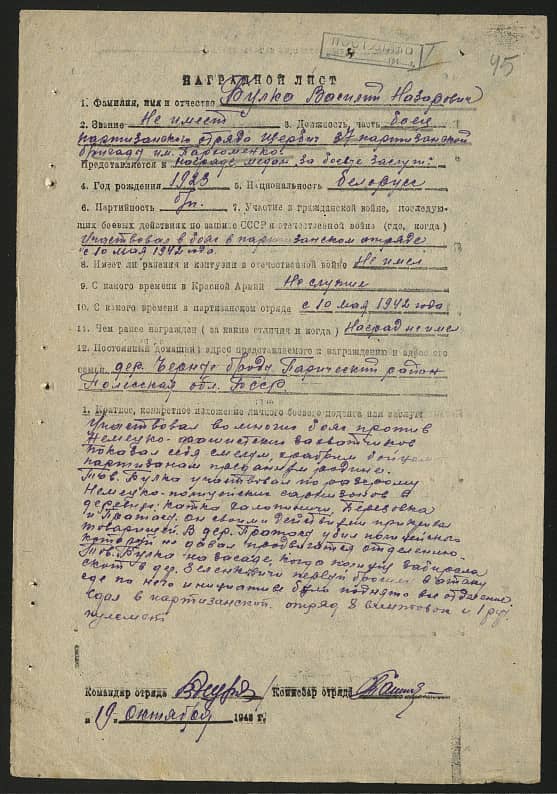 ПОСТУПИЛО
45
НАГРАДНОЙ ЛИСТ
1. Фамилия, имя и отчество Булка Василий Назарович
2. Звание Не имеет 3. Должность, часть боец
партизанского отряда Щербич 37 партизанской
бригады им. Пархоменко
Представляется к награде медали за боевые заслуги
4. Год рождения 1923 5. Национальность белорусс
6. Партийность б/п. 7. Участие в гражданской войне, последую-
щих боевых действиях по защите СССР и отечественной войне (где, когда)
Участвовал в боях в партизанском отряде
с 10 мая 1942 года
8. Имеет ли ранения и контузии в отечественной войне Не имел
9. С какого времени в Красной Армии Не служил
10. С какого времени в партизанском отряде с 10 мая 1942 года
11. Чем ранее награжден (за какие отличия и когда) Наград не имел
12. Постоянный домашний адрес представляемого к награждению и адрес его
семьи дер. Черные Броды Паричский район
Полесская обл. БССР
1. Краткое, конкретное изложение личного боевого подвига или заслуг
Участвовал во многих боях против
Немецко-фашистских захватчиков
показал себя смелым, храбрым бойцом
партизаном преданным родине.
Тов. Булка участвовал по разгрому
Немецко-полицейских гарнизонов в
деревнях Катка Березовка
и он своими действиями прикрыл
товарищей. В дер. убил полицейского
который не давал продвигатся отделению.
Тов. Булка на засаде, когда полиция забирала
скот в дер. Зеленковичи первый бросился в атаку
где по его инициативе было поднято все отделение
сдал в партизанский отряд 8 винтовок и 1 руч.
пулемет
Командир отряда Комиссар отряда
„19„ октября 1943 г.